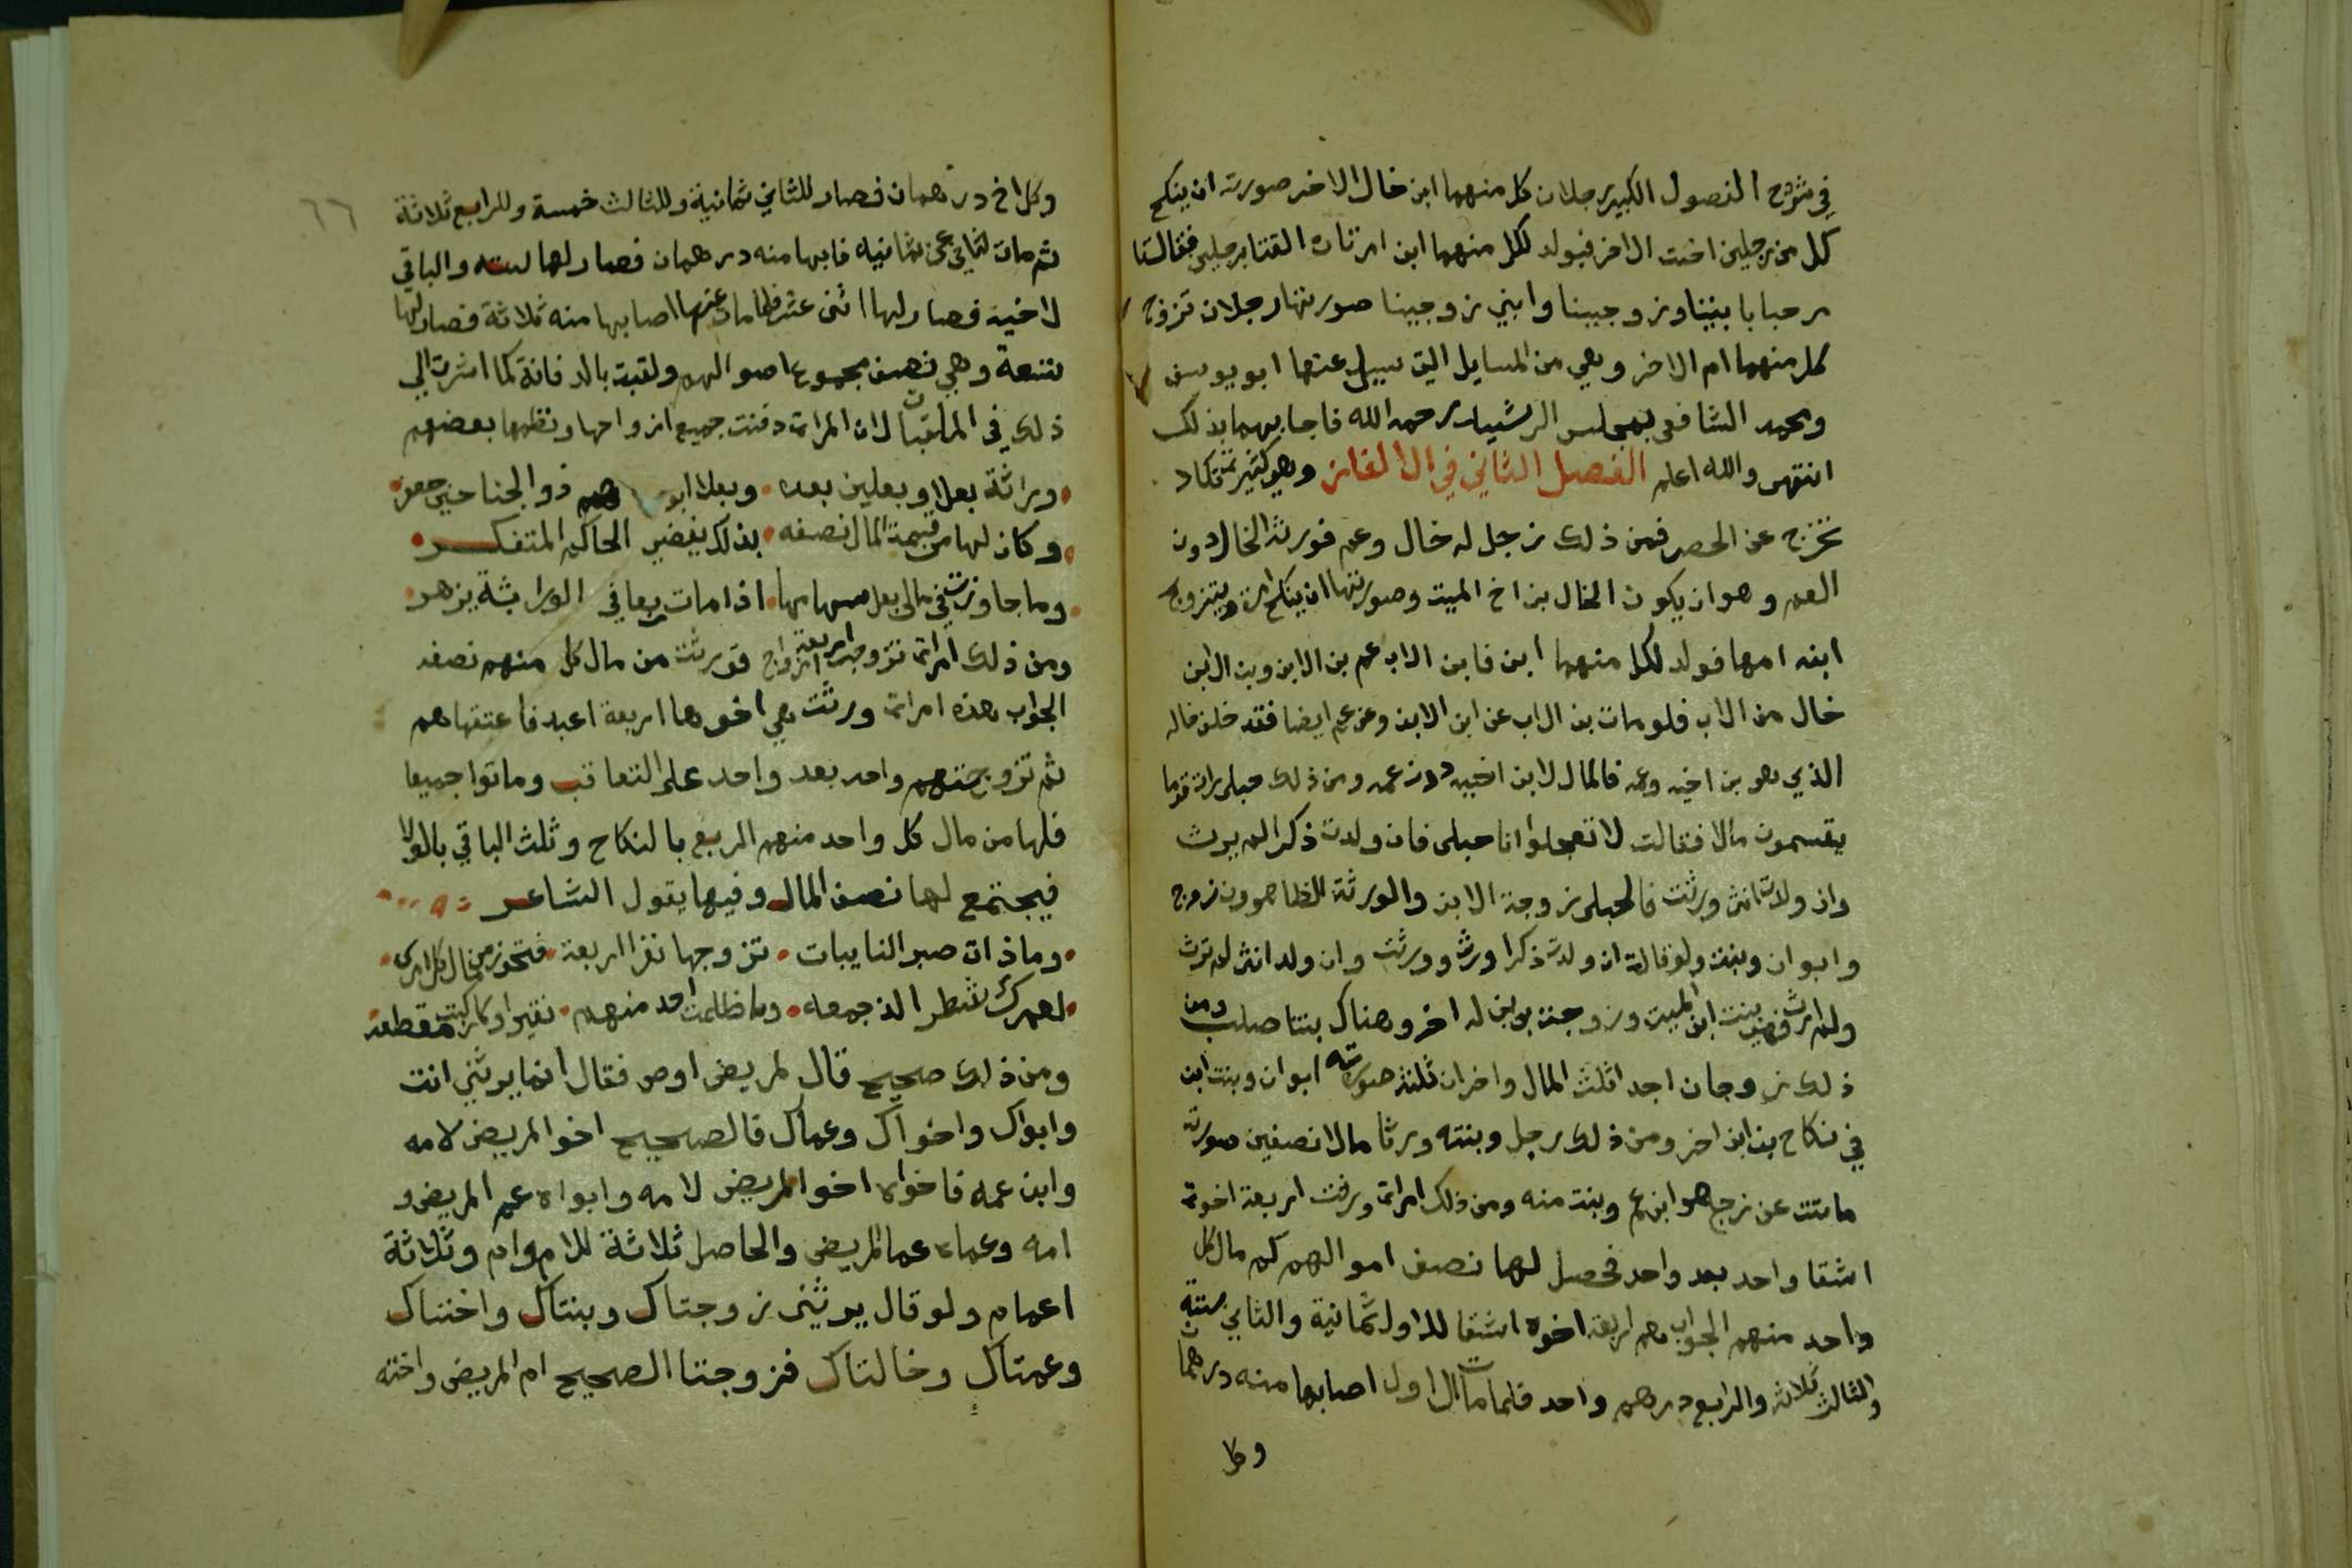 في شرح الفصول الكبير رجلان كل منهما ابن خال الاخر صورته ان ينكح
كل من رجلين اخت الاخر فيولد لكل منهما ابن امرتان التقتا برجلين فقالتا
مرحبا بابنينا وزوجينا وابني زوجينا صورتها رجلان تزوج
كل منهما ام الاخر وهي من المسايل التي سيل عنها ابو يوسف
ومحمد الشافعي بمجلس الرشيد رحمه الله فاجابهما بذلك
انتهى والله اعلم الفصل الثاني في الالغاز وهو كثير تكاد
تخرج عن الحصر فمن ذلك رجل له خال وعم فورثه الخال دون
العم وهو ان يكون الخال بن اخ الميت وصورتها ان ينكح امراة ويتزوج
ابنه امها فولد لكل منهما ابن فابن الاب عم بن الابن وبن الابن
خال من الاب فلو مات بن الاب عن ابن الابن وعن عم ايضا فقد خلف خاله
الذي هو بن اخيه وعمه فالمال لابن اخيه دون عمه ومن ذلك حبلى رات قوما
يقسمون مالا فقالت لا تعجلوا انا حبلى فان ولدت ذكرا لم يرث
وان ولدت انثى ورثت فالحبلى زوجة الابن والورثة الظاهرون زوج
وابوان وبنت ولو قالت ان ولدت ذكرا ورث وورثت وان ولد انثى لم ترث
ولم ارث فهي بنت ابن الميت وزوجت بن بن له اخر وهناك بنتا صلب ومن
ذلك زوجان اخذ اثلث المال واخران ثلثه صورته ابوان وبنت ابن
في نكاح بن ابن اخر ومن ذلك رجل وبنته ورثا مالا نصفين صورته
ماتت عن زوج هو ابن عم وبنت منه ومن ذلك امراة ورثت اربعة اخوة
اشقا واحد بعد واحد فحصل لها نصف اموالهم كم مال كل
واحد منهم الجواب هم اربعة اخوة اشقا للاول ثمانية والثاني ستة
والثالث ثلاثة والرابع درهم واحد فلما مات الاول اصابها منه درهمان
وكل
٦٦
وكل اخ درهمان فصار للثاني ثمانية وللثالث خمسة وللرابع ثلاثة
ثم مات الثاني عن ثمانيه فابها منه درهمان فصار لها ستة والباقي
لاخيه فصار لها اثنى عشر فلما مات عنها اصابها منه ثلاثة فصار لها
تسعة وهي نصف مجموع اموالهم ولقبت بالدفانة كما اشرت الي
ذلك في الملقبات لان المراة دفنت جميع ازواجها ونظمها بعضهم
وراثة بعل وبعلين بعده وبعلا ابو هم ذو الجناحين جعفر
وكان لها من قسمة المال نصفه بذلك يقضي الحاكم المتفكر
وما جاوزت في مال بعل سهامها اذا مات ربعا في الوراثة يزهر
ومن ذلك امراة تزوجها اربعة ازواج فورثت من مال كل منهم نصفه
الجواب هذه امراة ورثت هي اخوها اربعة اعبد فاعتقاهم
ثم تزوجتهم واحد بعد واحد على التعاقب وماتوا جميعا
فلها من مال كل واحد منهم الربع بالنكاح وثلث الباقي بالولا
فيجتمع لها نصف المال وفيها يقول الشاعر
وما ذات صبر النايبات تزوجها نفرا اربعة فتحوز من مال كل امرى
لعمرك شطر الذ جمعه وما ظلمت احد منهم نقيرا
ومن ذلك صحيح قال لمريض اوص فقال انما يرثني انت
وابواك واخواك وعماك فالصحيح اخو المريض لامه
وابن عمه فاخواه اخوا المريض لامه وابواه عم المريض و
امه وعماه عما المريض والحاصل ثلاثة للام وام وثلاثة
اعمام ولو قال يرثنى زوجتاك وبنتاك واختاك
وعمتاك وخالتاك فزوجتا الصحيح ام المريض واخته